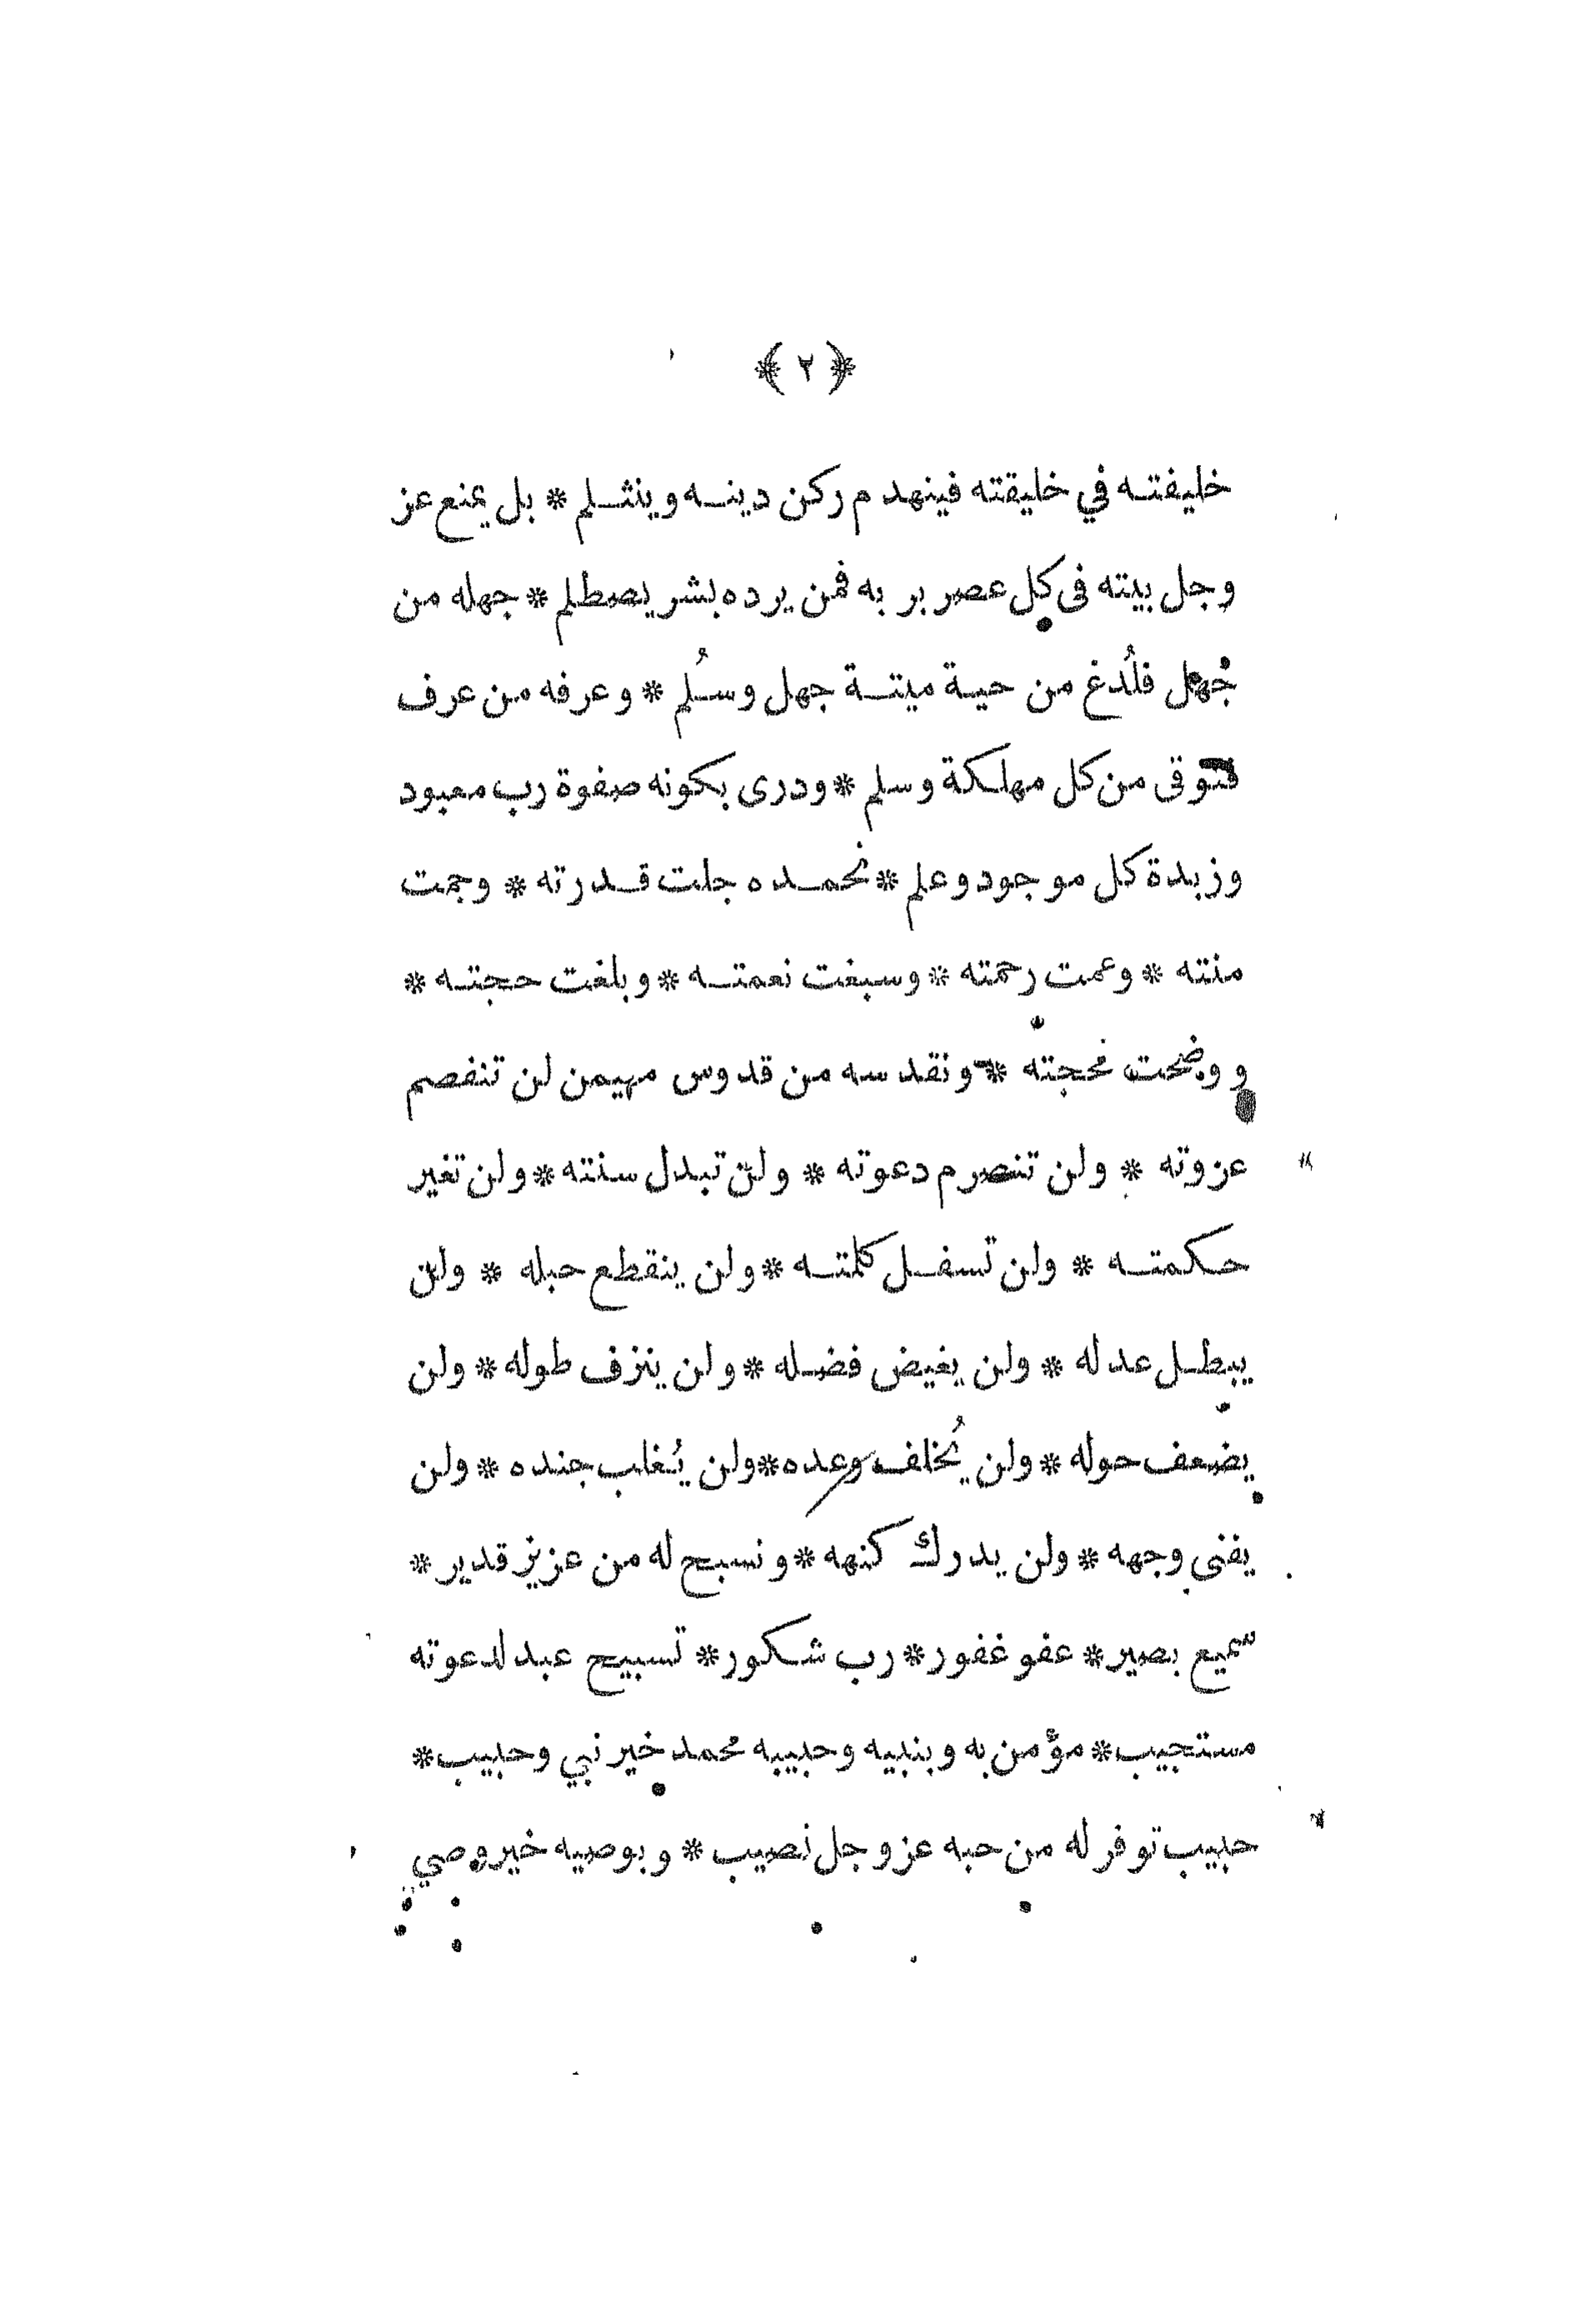 ﴿ ٢ ﴾
خليفته في خليقته فينهدم ركن دينه وينثلم * بل يمنع عز
وجل بيته فى كل عصر بر به فمن يرده بشر يصطلم * جهله من
جُهل فلُدغ من حية ميتة جهل وسُلم * وعرفه من عرف
فتوقى من كل مهلكة وسلم * ودرى بكونه صفوة رب معبود
وزبدة كل موجود وعلم * نحمده جلت قدرته * وجمت
منته * وعمت رحمته * وسبغت نعمته * وبلغت حجته *
ووضحت محجته * ونقدسه من قدوس مهيمن لن تنفصم
عزوته * ولن تنصرم دعوته * ولن تبدل سنته * ولن تغير
حكمته * ولن تسفل كلمته * ولن ينقطع حبله * ولن
يبطل عدله * ولن يغيض فضله * ولن ينزف طوله * ولن
يضعف حوله * ولن يُخلف وعده * ولن يُغلب جنده * ولن
يفنى وجهه * ولن يدرك كنهه * ونسبح له من عزيز قدير *
سميع بصير * عفو غفور * رب شكور * تسبيح عبد لدعوته
مستجيب * مؤمن به وبنبيه وحبيبه محمد خير نبي وحبيب *
حبيب توفر له من حبه عز وجل نصيب * وبوصيه خير وصي